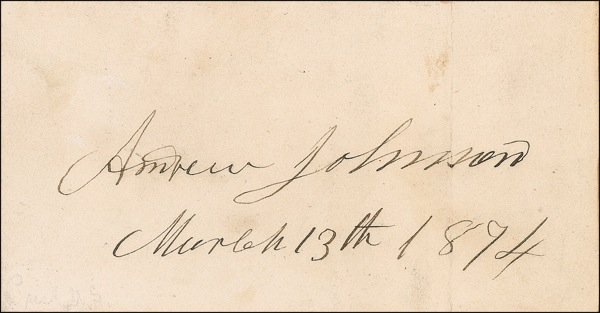 Andrew Johnson
March 13th 1874